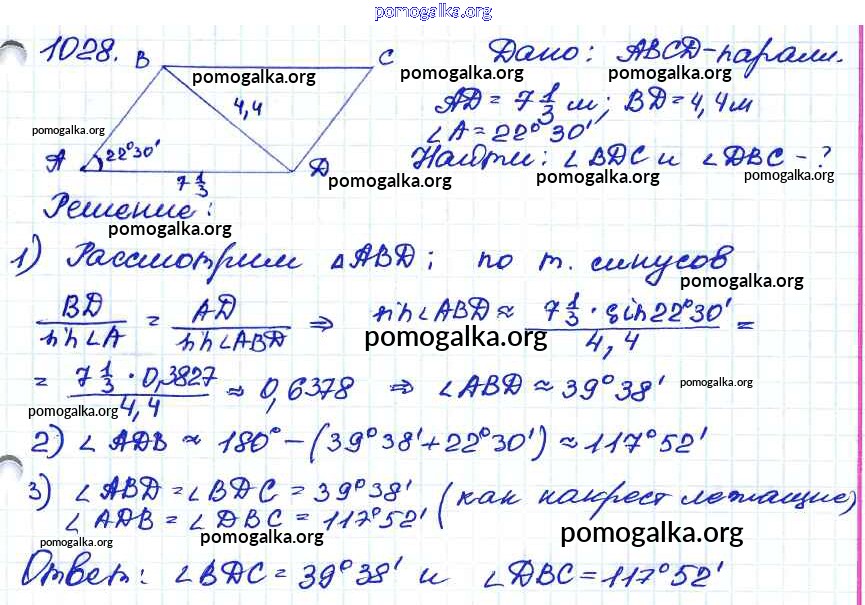 pomogalka.org
1028. B C Дано: ABCD-паралл.
pomogalka.org pomogalka.org pomogalka.org
4,4 AD = 7 1/3 м; BD = 4,4 м
pomogalka.org
A 22°30' D ∠A = 22°30'
7 1/3 Найти: ∠BDC и ∠DBC - ?
pomogalka.org pomogalka.org pomogalka.org
Решение:
pomogalka.org
1) Рассмотрим △ABD; по т. синусов
pomogalka.org
BD/sin∠A = AD/sin∠ABD ⇒ sin∠ABD ≈ 7 1/3 · sin22°30'/4,4 =
pomogalka.org
= 7 1/3 · 0,3827/4,4 ≈ 0,6378 ⇒ ∠ABD ≈ 39°38'
pomogalka.org
pomogalka.org
2) ∠ADB ≈ 180° - (39°38' + 22°30') ≈ 117°52'
3) ∠ABD = ∠BDC = 39°38' (как накрест лежащие)
∠ADB = ∠DBC = 117°52'
pomogalka.org pomogalka.org pomogalka.org
Ответ: ∠BDC = 39°38' и ∠DBC = 117°52'